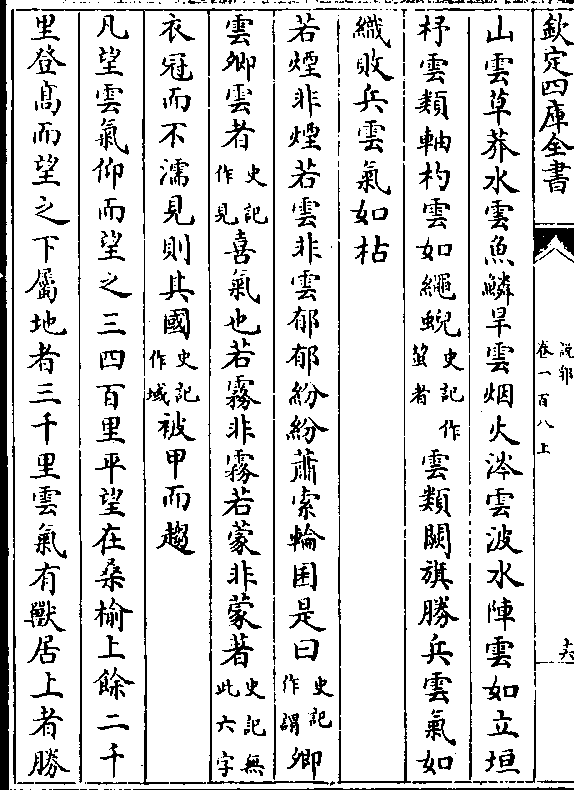 欽定四庫全書
說郛
卷一百八上
山雲草莽水雲魚鱗旱雲烟火涔雲波水陣雲如立垣
杼雲類軸杓雲如繩蜺史記作蜺者雲類闕旗勝兵雲氣如
織敗兵雲氣如枯
若煙非煙若雲非雲郁郁紛紛蕭索輪囷是曰史記作謂卿
雲卿雲者史記作見喜氣也若霧非霧若蒙非蒙著史記無此六字
衣冠而不濡見則其國史記作域被甲而趨
凡望雲氣仰而望之三四百里平望在桑榆上餘二千
里登高而望之下屬地者三千里雲氣有獸居上者勝